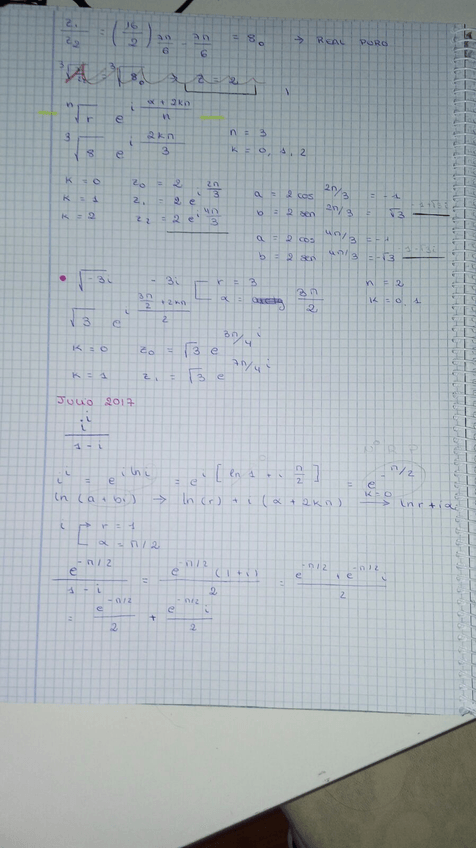 z₁/z₂ = (16/2) 7π/6 - 7π/6 = 8₀ → REAL PURO
³√8₀ → z = 2
ⁿ√r e^(i (α + 2kπ)/n)
³√8 e^(i 2kπ/3) n = 3 k = 0, 1, 2
k = 0 z₀ = 2 a = 2 cos 2π/3 = -1
k = 1 z₁ = 2 e^(i 2π/3) b = 2 sen 2π/3 = √3
k = 2 z₂ = 2 e^(i 4π/3) a = 2 cos 4π/3 = -1
b = 2 sen 4π/3 = -√3
• √-3i - 3i [ r = 3 α = 3π/2 n = 2 k = 0, 1
√3 e^(i (3π/2 + 2kπ)/2)
k = 0 z₀ = √3 e^(3π/4 i)
k = 1 z₁ = √3 e^(7π/4 i)
JULIO 2017
i^i/(1 - i)
i^i = e^(i ln i) = e^(i [ln 1 + i π/2]) = e^(-π/2)
ln (a + bi) → ln(r) + i (α + 2kπ) → k=0 ln r + iα
i [ → r = 1
→ α = π/2
e^(-π/2)/(1 - i) = e^(-π/2) (1 + i)/2 = (e^(-π/2) + e^(-π/2) i)/2
= e^(-π/2)/2 + e^(-π/2) i/2